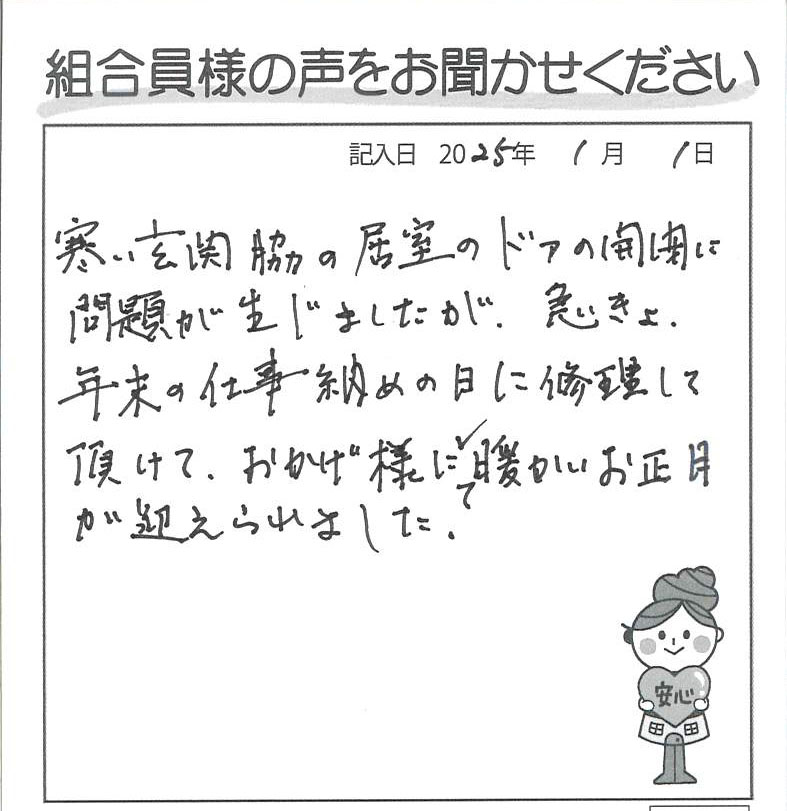 組合員様の声をお聞かせください
記入日 2025年 1月 1日
寒い玄関脇の居室のドアの開閉に
問題が生じましたが、急いきょ、
年末の仕事納めの日に修理して
頂けて、おかげ様にて暖かいお正月
が迎えられました。
安心